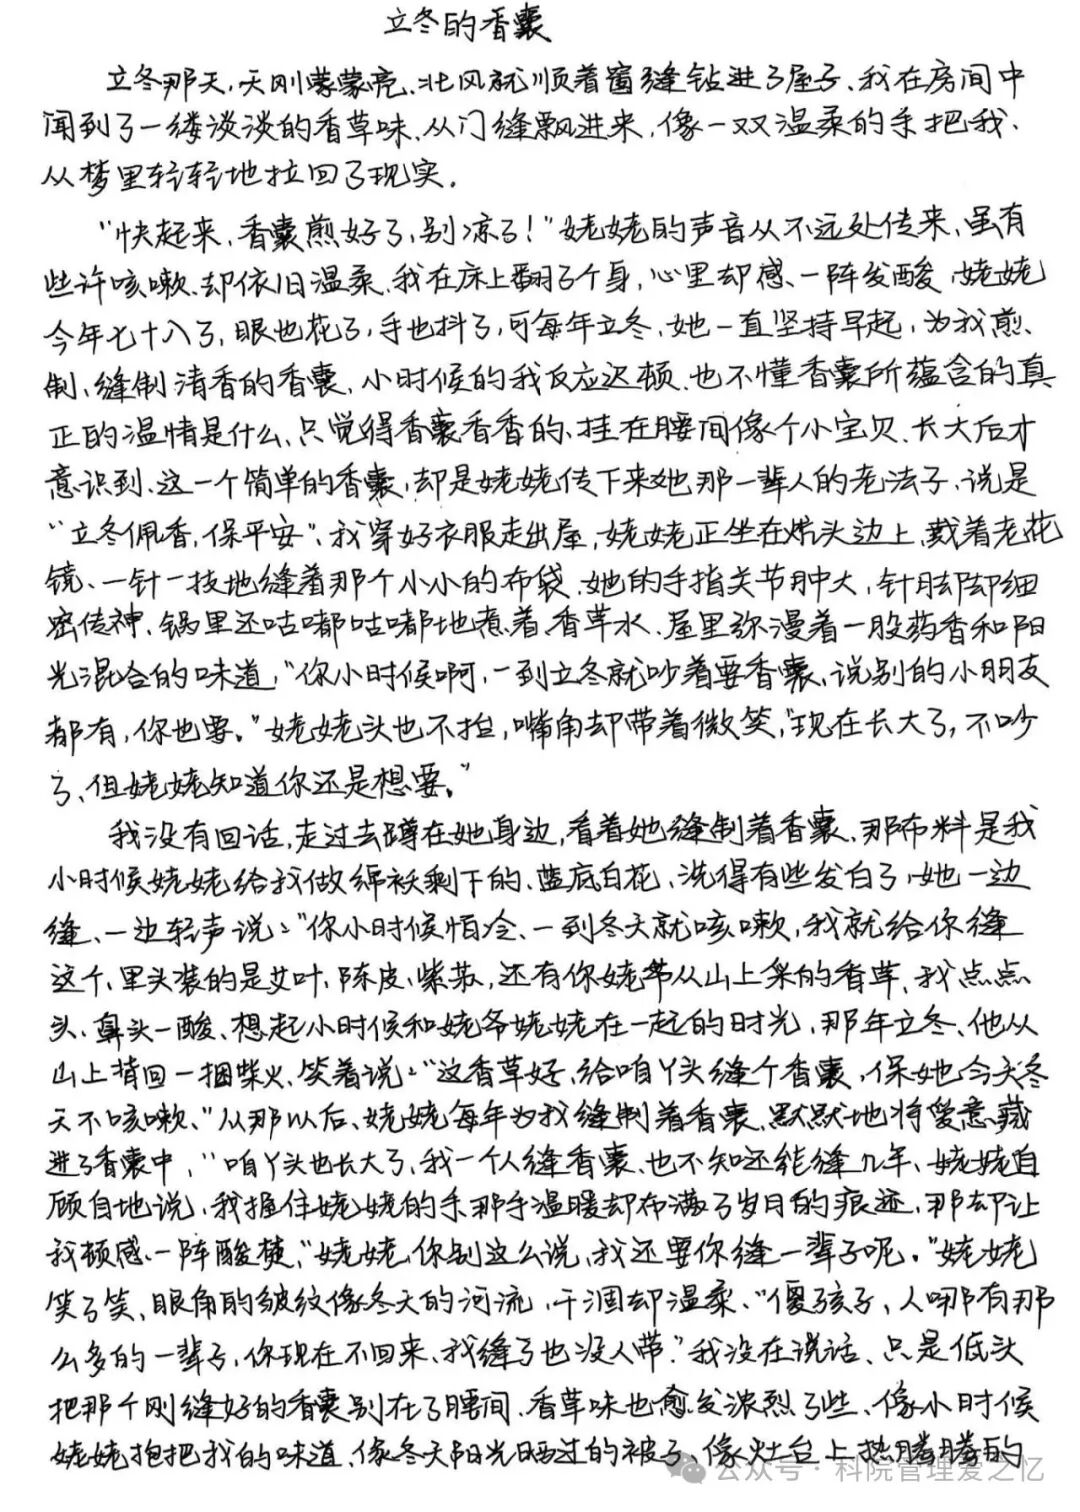 立冬的香囊
立冬那天,天刚蒙蒙亮、北风就顺着窗缝钻进了屋子、我在房间中
闻到了一缕淡淡的香草味、从门缝飘进来,像一双温柔的手把我、
从梦里轻轻地拉回了现实.
“快起来,香囊煎好了,别凉了!”姥姥的声音从不远处传来,虽有
些许咳嗽、却依旧温柔、我在床上翻了个身,心里却感、一阵发酸,姥姥
今年七十八了,眼也花了,手也抖了,可每年立冬,她一直坚持早起,为我煎、
制、缝制清香的香囊、小时候的我反应迟顿、也不懂香囊所蕴含的真
正的温情是什么、只觉得香囊香香的、挂在腰间像个小宝贝、长大后才
意识到、这一个简单的香囊,却是姥姥传下来她那一辈人的老法子、说是
“立冬佩香,保平安”、我穿好衣服走出屋,姥姥正坐在炕头边上,戴着老花
镜、一针一技地缝着那个小小的布袋、她的手指关节肿大,针脚却细
密传神、锅里还咕嘟咕嘟地煮着、香草水、屋里弥漫着一股药香和阳
光混合的味道,“你小时候啊,一到立冬就吵着要香囊,说别的小朋友
都有,你也要。”姥姥头也不抬,嘴角却带着微笑,“现在长大了,不吵
了、但姥姥知道你还是想要。”
我没有回话,走过去蹲在她身边,看着她缝制着香囊、那布料是我
小时候姥姥给我做绵袄剩下的、蓝底白花、洗得有些发白了,她一边
缝、一边轻声说:“你小时候怕冷、一到冬天就咳嗽,我就给你缝
这个,里头装的是艾叶,陈皮,紫苏,还有你姥爷从山上采的香草、我点点
头、鼻头一酸、想起小时候和姥爷姥姥在一起的时光,那年立冬、他从
山上背回一捆柴火、笑着说:“这香草好,给咱丫头缝个香囊,保她今天冬
天不咳嗽、”从那以后、姥姥每年为我缝制着香囊、默默地将爱意藏
进了香囊中,“咱丫头也长大了,我一个人缝香囊、也不知还能缝几年、姥姥自
顾自地说,我握住姥姥的手那手温暖却布满了岁月的痕迹,那却让
我顿感、一阵酸楚、“姥姥,你别这么说,我还要你缝一辈子呢。”姥姥
笑了笑、眼角的皱纹像冬天的河流,干涸却温柔、“傻孩子,人哪有那
么多的一辈子,你现在不回来、我缝了也没人带.”我没在说话、只是低头
把那个刚缝好的香囊别在了腰间、香草味也愈发浓烈了些、像小时候
姥姥抱把我的味道、像冬天阳光晒过的被子、像灶台上热腾腾的
公众号·科院管理爱之忆